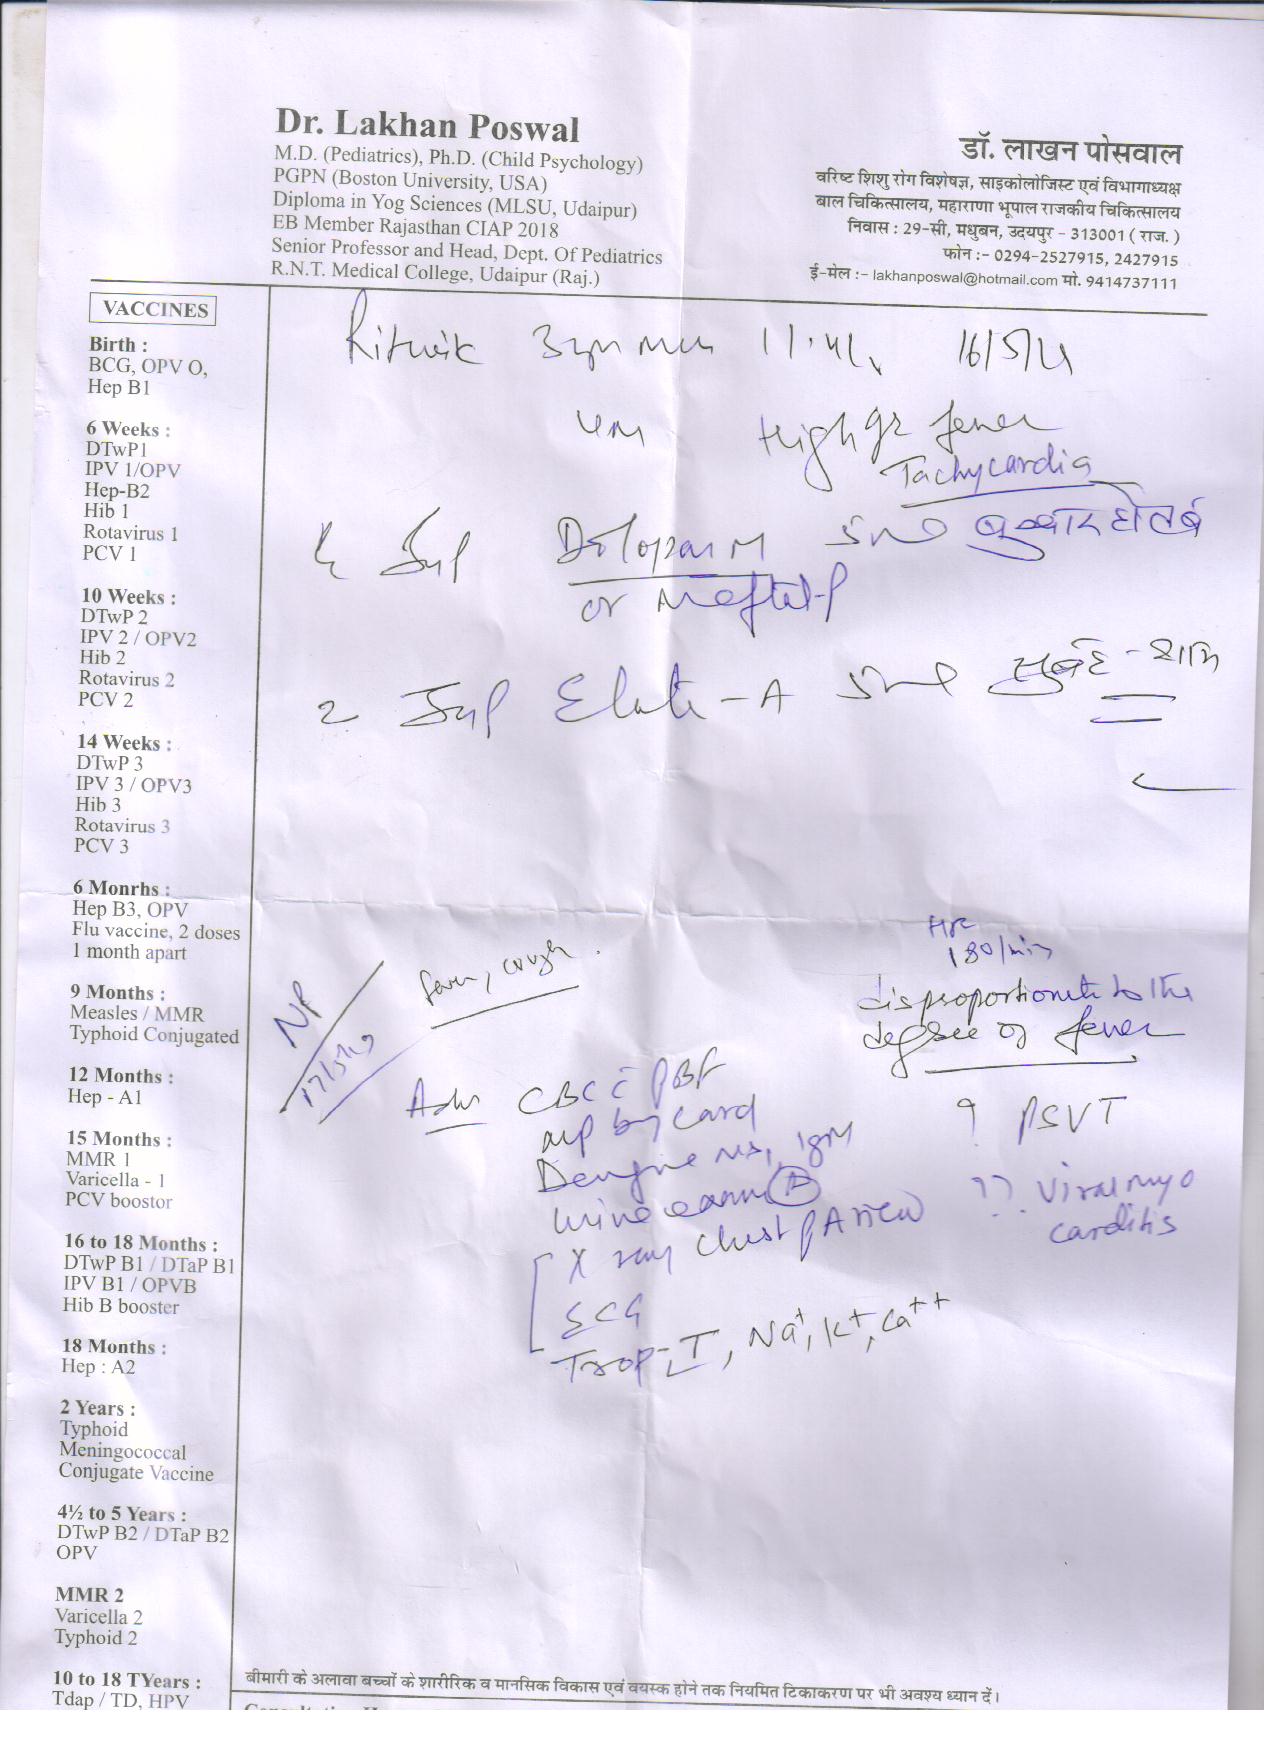 Dr. Lakhan Poswal
M.D. (Pediatrics), Ph.D. (Child Psychology)
PGPN (Boston University, USA)
Diploma in Yog Sciences (MLSU, Udaipur)
EB Member Rajasthan CIAP 2018
Senior Professor and Head, Dept. Of Pediatrics
R.N.T. Medical College, Udaipur (Raj.)
डॉ. लाखन पोसवाल
वरिष्ट शिशु रोग विशेषज्ञ, साइकोलोजिस्ट एवं विभागाध्यक्ष
बाल चिकित्सालय, महाराणा भूपाल राजकीय चिकित्सालय
निवास : 29-सी, मधुबन, उदयपुर - 313001 ( राज. )
फोन :- 0294-2527915, 2427915
ई-मेल :- lakhanposwal@hotmail.com मो. 9414737111
VACCINES
Birth :
BCG, OPV O,
Hep B1
6 Weeks :
DTwP1
IPV 1/OPV
Hep-B2
Hib 1
Rotavirus 1
PCV 1
10 Weeks :
DTwP 2
IPV 2 / OPV2
Hib 2
Rotavirus 2
PCV 2
14 Weeks :
DTwP 3
IPV 3 / OPV3
Hib 3
Rotavirus 3
PCV 3
6 Monrhs :
Hep B3, OPV
Flu vaccine, 2 doses
1 month apart
9 Months :
Measles / MMR
Typhoid Conjugated
12 Months :
Hep - A1
15 Months :
MMR 1
Varicella - 1
PCV boostor
16 to 18 Months :
DTwP B1 / DTaP B1
IPV B1 / OPVB
Hib B booster
18 Months :
Hep : A2
2 Years :
Typhoid
Meningococcal
Conjugate Vaccine
4½ to 5 Years :
DTwP B2 / DTaP B2
OPV
MMR 2
Varicella 2
Typhoid 2
10 to 18 TYears :
Tdap / TD, HPV
Ritwik
High gr fever
Tachycardia
Syp Doloparm बुखार हो तब
or Meftal-P
2 Syp सुबह - शाम
fever, cough
HR
180/min
disproportionate to the
degree of fever
Adv CBC c̄ PBF
MP by card
Dengue NS1, IgM
Urine exam
X ray chest PA view
ECG
Trop-T, Na+, K+, Ca++
? PSVT
?? Viral myo
carditis
बीमारी के अलावा बच्चों के शारीरिक व मानसिक विकास एवं वयस्क होने तक नियमित टिकाकरण पर भी अवश्य ध्यान दें।